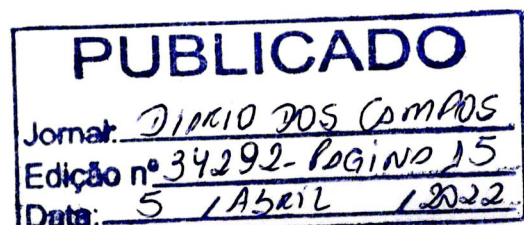 PUBLICADO
Jornal: DIARIO DOS CAMPOS
Edição nº 34292-PAGINA 15
Data: 5 / ABRIL / 2022